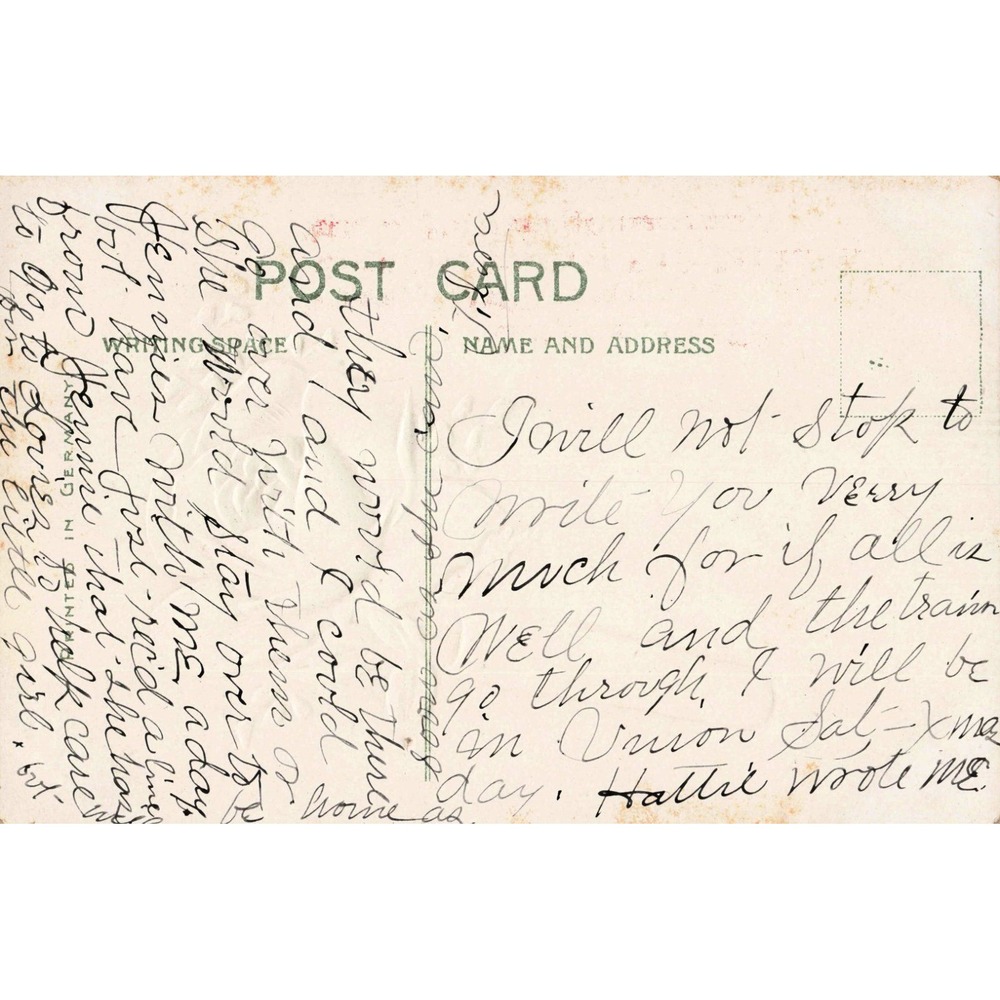 POST CARD
WRITING SPACE
NAME AND ADDRESS
PRINTED IN GERMANY
I will not stop to
write you verry
much for if all is
Well and the train
go through, I will be
in Union Sat - Xmas
day. Hattie wrote me
they would be there
and and I could
go over with them or
She would stay over to be
Jennies with me a day.
but have just rec'd a line
from Jennie that she has
to go to Lovies to take care
for the little girl. but
home as